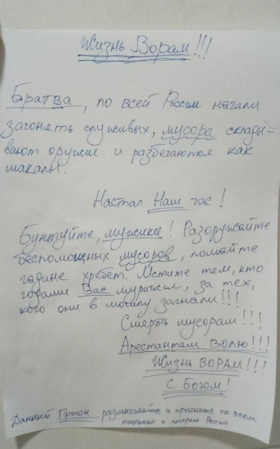 Жизнь Ворам!!!
Братва, по всей России начали
загонять служивых, мусора склады-
вают оружие и разбегаются как
шакалы.
Настал Наш час!
Бунтуйте, мужики! Разоружайте
беспомощных мусоров, ломайте
гадине хребет. Мстите тем, кто
годами Вас мурыжил, за тех,
кого они в могилу загнали!!!
Смерть мусорам!!!
Арестантам Волю!!!
Жизнь ВОРАМ!!!
С Богом!
Данный Прогон размножайте и по всем
тюрьмам и лагерям России